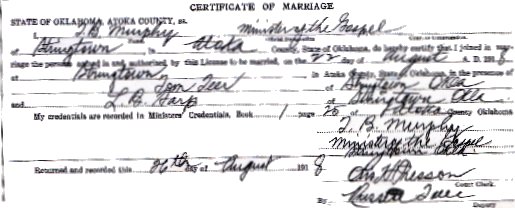 CERTIFICATE OF MARRIAGE
STATE OF OKLAHOMA, ATOKA COUNTY, ss.
I, T. B. Murphy Minister of the Gospel
of Stringtown in Atoka County, State of Oklahoma, do hereby certify that I joined in mar-
riage the persons named in and authorized by this License to be married, on the 22 day of August A. D. 1918
at Stringtown in Atoka County, State of Oklahoma, in the presence of
Tom Teer of Stringtown Okla
and L. B. of Stringtown Okla
My credentials are recorded in Ministers' Credentials, Book 1 page 25 of Atoka County Oklahoma
T. B. Murphy
Minister of the Gospel
Stringtown Okla
Returned and recorded this 26th day of August 1918
Court Clerk.
By
Deputy